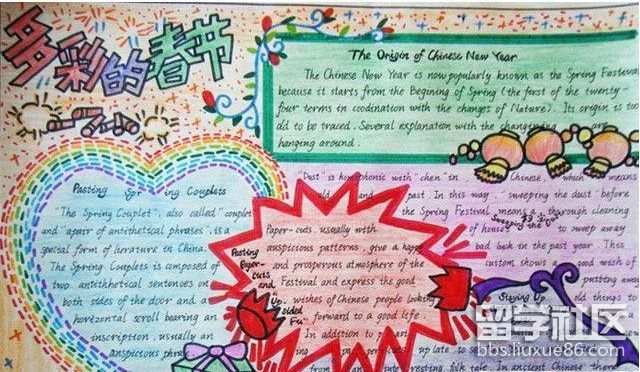 多彩的春节
The Origin of Chinese New Year
The Chinese New Year is now popularly known as the Spring Festival
because it starts from the Begining of Spring (the first of the twenty-
four terms in coodination with the changes of Nature). Its origin is too
old to be traced. Several explanation with the are
hanging around.
Pasting Spr ing Couplets
"The Spring Couplet", also called "couplet
and "a pair of antithetical phrases", is a
special form of literature in China.
The Spring Couplets is composed of
two antithetical sentences on
both sides of the door and a
horizontal scroll bearing an
inscription, usually an
auspicious phrase.
Pasting
Paper-
cuts
and
Up
sided
Fu"
Paper-cuts, usually with
auspicious patterns, give a happy
and prosperous atmosphere of the
Festival and express the good
wishes of Chinese people looking
forward to a good life.
In addition to
"Dust" is homophonic with "chen" in Chinese, which means
old and past. In this way, "sweeping the dust" before
the Spring Festival means a thorough cleaning
of houses to sweep away
bad luck in the past year. This
custom shows a good wish of
putting away
old things
Sweeping the Dust
Staying Up
late to
interesting folk tale. In ancient Chinese there
留学社区
bbs.liuxue86.com